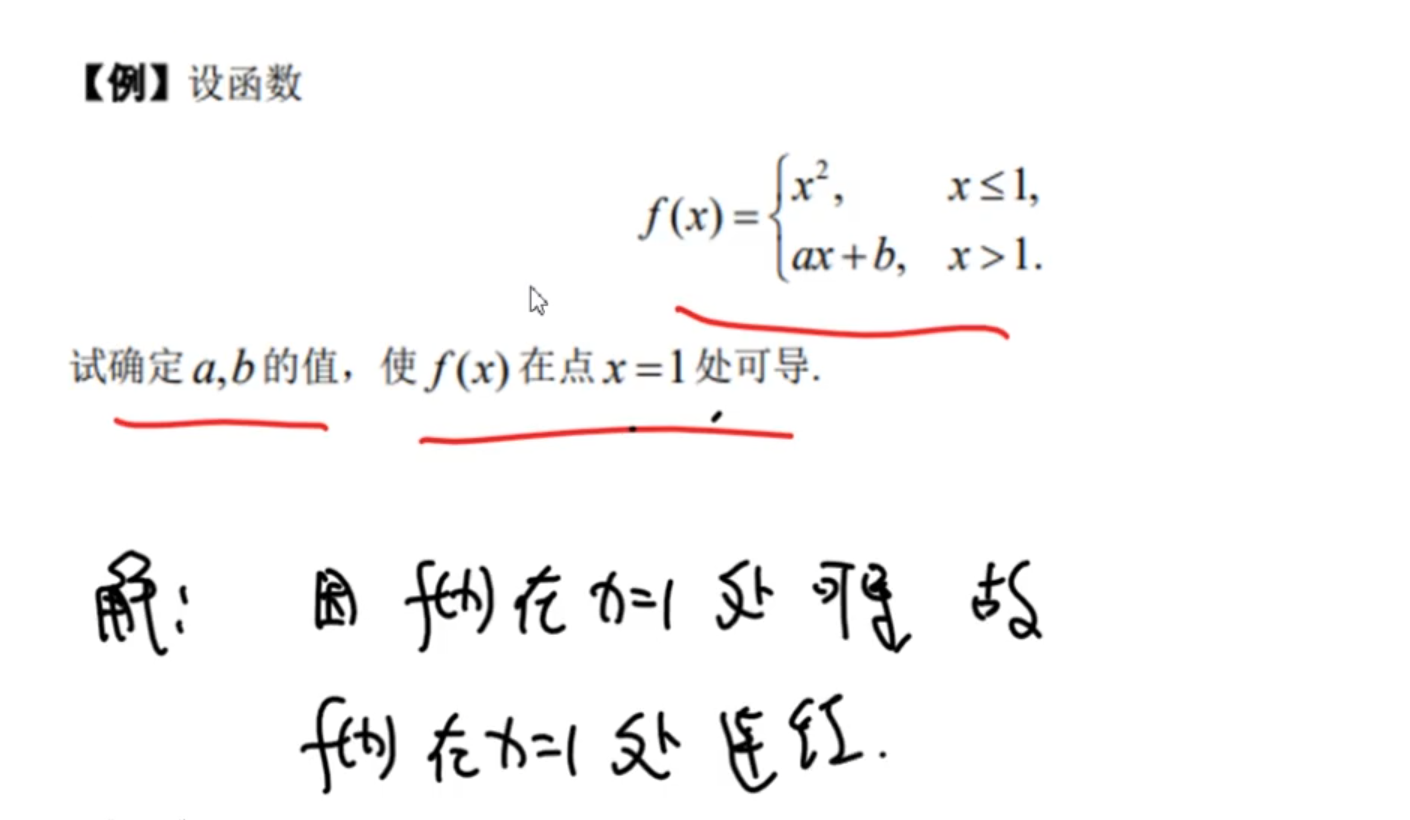 【例】设函数
f(x) = { x², x ≤ 1,
ax + b, x > 1.
试确定 a, b 的值，使 f(x) 在点 x = 1 处可导.
解： 因 f(x) 在 x=1 处 可导 故
f(x) 在 x=1 处 连续.